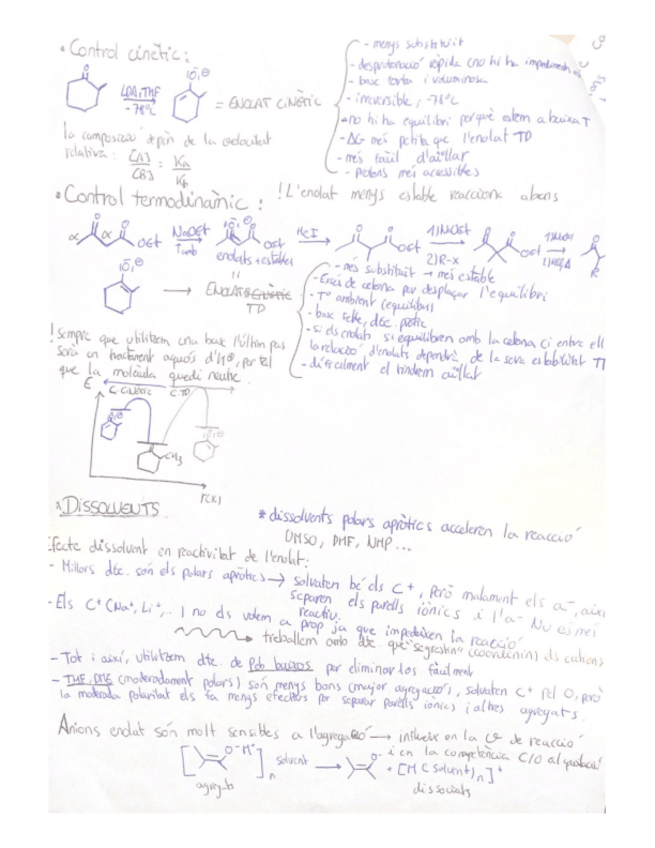 • Control cinètic:
LDA, THF
-78ºC
= ENOLAT CINÈTIC
- menys substituït
- desprotonació ràpida (no hi ha impediments
- base forta i voluminosa
- irreversible, -78ºC
- no hi ha equilibri perquè estem a baixa T
- ΔG més petita que l'enolat TD
- més fàcil d'aïllar
- protons més accessibles
la composició depèn de la velocitat
relativa: [A] / [B] = Ka / Kb
• Control termodinàmic: ! L'enolat menys estable reacciona abans
α α OEt
NaOEt
Tamb
OEt
enolats + estables
HCl
OEt
1) NaOEt
2) R-X
OEt
R
= ENOLAT CINÈTIC
TD
- més substituït → més estable
- Excés de cetona per desplaçar l'equilibri
- Tº ambient (equilibri)
- base feble, dtc. pròtic
- si els enolats s'equilibren amb la cetona
la relació d'enolats dependrà de la seva estabilitat
- difícilment el tindrem aïllat
! Sempre que utilitzem una base l'últim pas
serà un tractament aquós d'H⊕, per tal
que la molècula quedi neutre.
E
C. CINÈTIC C. TD
CH3
* DISSOLVENTS
* dissolvents polars apròtics acceleren la reacció
DMSO, DMF, NMP...
Efecte dissolvent en reactivitat de l'enolat:
- Millors dtc. són els polars apròtics → solvaten bé els C⁺, però malament els a⁻, així
separen els parells iònics i l'a⁻ Nu és més
reactiu.
- Els C⁺ (Na⁺, Li⁺, ...) no els volem a prop ja que impedeixen la reacció
→ treballem amb dtc. que "segrestin" (coordenin) els cations
- Tot i així, utilitzem dtc. de Peb baixos per eliminar-los fàcilment
- THF, DME (moderadament polars) són menys bons (major agregació), solvaten C⁺ pel O, però
la moderada polaritat els fa menys efectius per separar parells iònics i altres agregats.
Anions enolat són molt sensibles a l'agregació → influeix en la Vº de reacció
i en la competència C/O alquilació
[ O⁻M⁺ ]n solvent → O⁻ + [M(Solvent)n]⁺
agregats dissociats